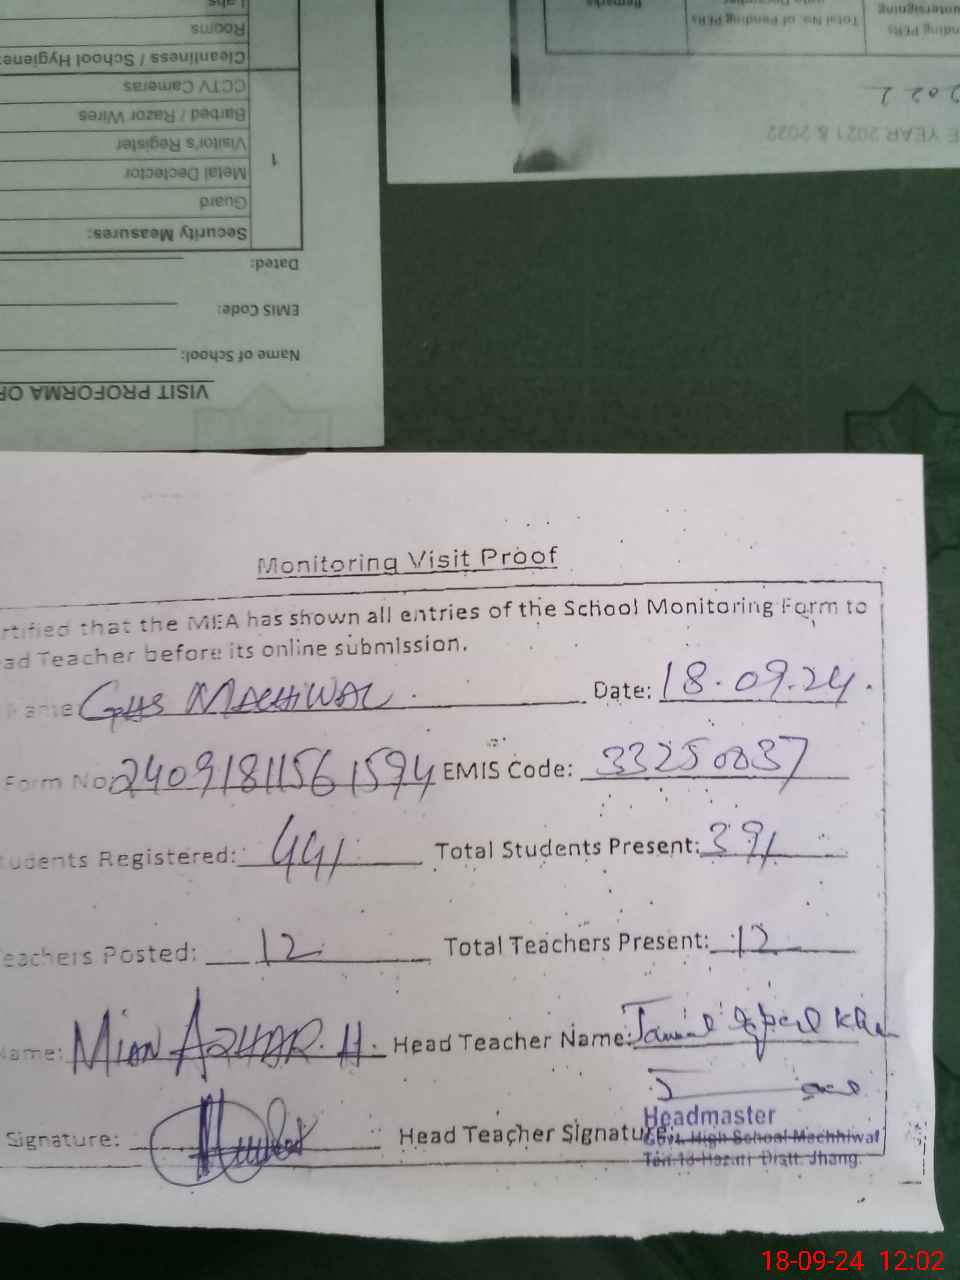 Labs
Rooms
Cleanliness / School Hygiene:
CCTV Cameras
Barbed / Razor Wires
Visitor's Register
1
Metal Dectector
Guard
Security Measures:
Dated:
EMIS Code:
Name of School:
VISIT PROFORMA OF
Remarks
Total No. of Pending PERs
nding PERs
untersigning
2022
E YEAR 2021 & 2022
Monitoring Visit Proof
rtified that the MEA has shown all entries of the School Monitoring Form to
ad Teacher before its online submission.
Name GHS MACHIWAL. Date: 18.09.24.
Form No 24091811561594 EMIS Code: 33250037
tudents Registered: 441 Total Students Present: 391
eachers Posted: 12 Total Teachers Present: 12
Name: MIAN AZHAR. H. Head Teacher Name: Jamal Iqbal Khan
Signature: Head Teacher Signature:
Headmaster
Govt. High School Machhiwal
Teh. 18-Hazari Distt. Jhang.
18-09-24 12:02